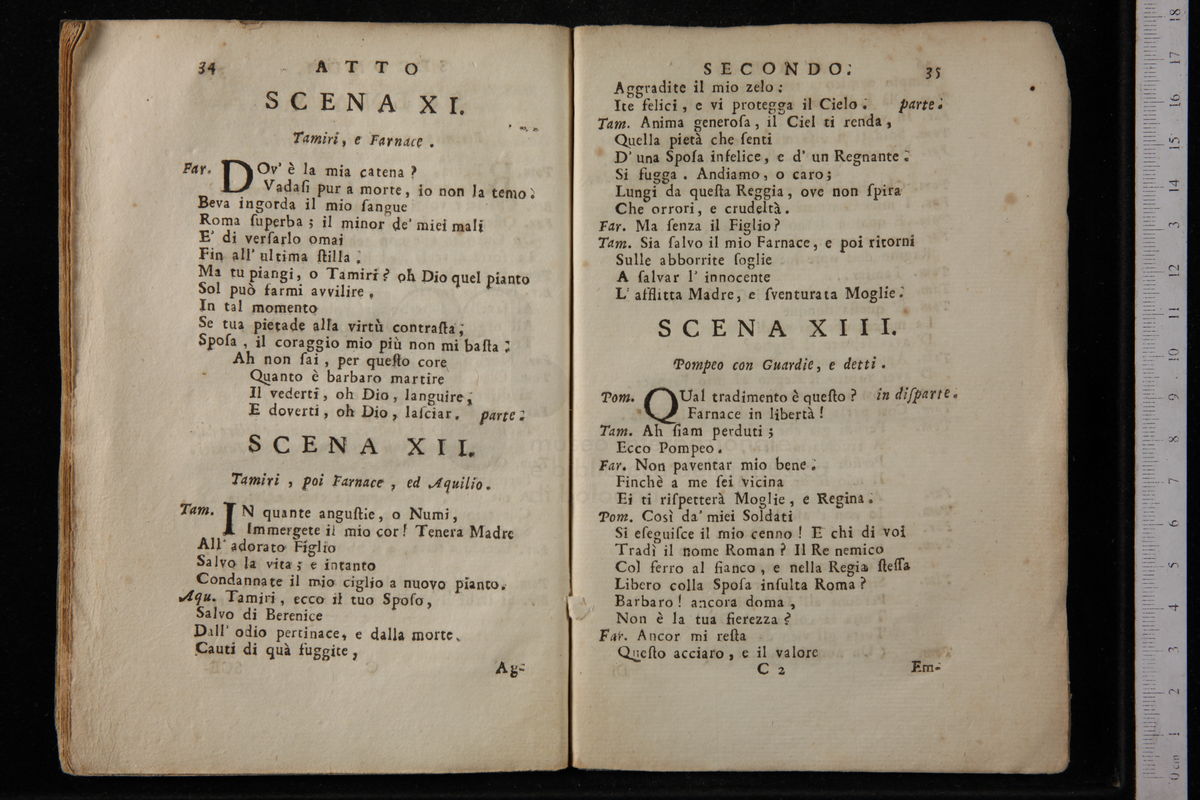 34 ATTO
SCENA XI.
Tamiri, e Farnace.
Far. DOv' è la mia catena?
Vadaſi pur a morte, io non la temo.
Beva ingorda il mio ſangue
Roma ſuperba; il minor de' miei mali
E' di verſarlo omai
Fin all' ultima ſtilla.
Ma tu piangi, o Tamiri? oh Dio quel pianto
Sol può farmi avvilire,
In tal momento
Se tua pietade alla virtù contraſta;
Spoſa, il coraggio mio più non mi baſta.
Ah non ſai, per queſto core
Quanto è barbaro martire
Il vederti, oh Dio, languire,
E doverti, oh Dio, laſciar. parte.
SCENA XII.
Tamiri, poi Farnace, ed Aquilio.
Tam. IN quante anguſtie, o Numi,
Immergete il mio cor! Tenera Madre
All' adorato Figlio
Salvo la vita; e intanto
Condannate il mio ciglio a nuovo pianto.
Aqu. Tamiri, ecco il tuo Spoſo,
Salvo di Berenice
Dall' odio pertinace, e dalla morte.
Cauti di quà fuggite,
Ag-
SECONDO. 35
Aggradite il mio zelo:
Ite felici, e vi protegga il Cielo. parte.
Tam. Anima generoſa, il Ciel ti renda,
Quella pietà che ſenti
D' una Spoſa infelice, e d' un Regnante.
Si fugga. Andiamo, o caro;
Lungi da queſta Reggia, ove non ſpira
Che orrori, e crudeltà.
Far. Ma ſenza il Figlio?
Tam. Sia ſalvo il mio Farnace, e poi ritorni
Sulle abborrite ſoglie
A ſalvar l' innocente
L' afflitta Madre, e ſventurata Moglie.
SCENA XIII.
Pompeo con Guardie, e detti.
Pom. QUal tradimento è queſto? in diſparte.
Farnace in libertà!
Tam. Ah ſiam perduti;
Ecco Pompeo.
Far. Non paventar mio bene.
Finchè a me ſei vicina
Ei ti riſpetterà Moglie, e Regina.
Pom. Così da' miei Soldati
Si eſeguiſce il mio cenno! E chi di voi
Tradì il nome Roman? Il Re nemico
Col ferro al fianco, e nella Regia ſteſſa
Libero colla Spoſa inſulta Roma?
Barbaro! ancora doma,
Non è la tua fierezza?
Far. Ancor mi reſta
Queſto acciaro, e il valore
C 2 Em-
0 cm 1 2 3 4 5 6 7 8 9 10 11 12 13 14 15 16 17 18